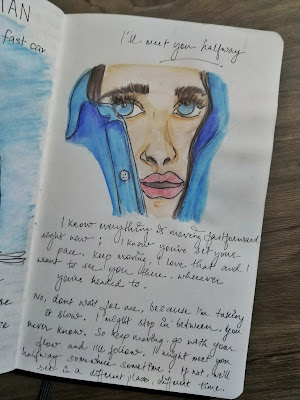 IAN
fast car
I'll meet you halfway
I know everything is moving fastforward
right now; I know you've set your
pace. Keep moving, I love that and I
want to see you there. wherever
you're headed to.
No, dont wait for me, because I'm taking
it slow. I might stop in between, you
never know. So keep moving. go with your
flow and I'll follow. I might meet you
halfway somewhere sometime if not, we'll
in a different place, different time.